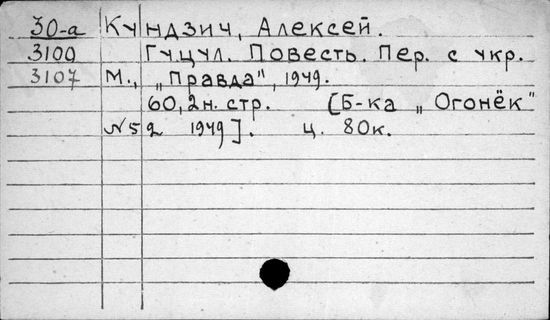 30-а Кундзич, Алексей.
3100 Гуцул. Повесть. Пер. с укр.
3107 М., „Правда", 1949.
60, 2н. стр. [Б-ка „Огонёк"
№52 1949]. ц. 80к.